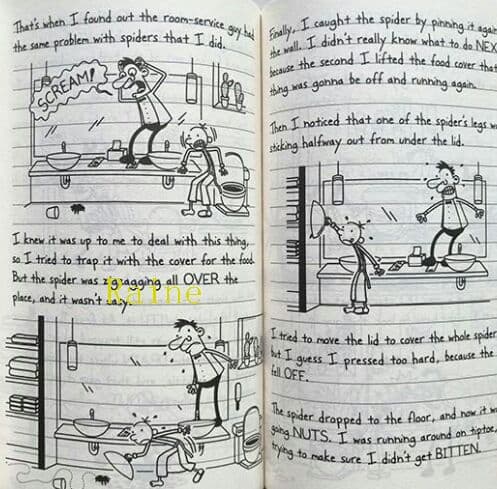 That's when I found out the room-service guy had
the same problem with spiders that I did.
SCREAM!
I knew it was up to me to deal with this thing,
so I tried to trap it with the cover for the food.
But the spider was zigzagging all OVER the
place, and it wasn't
Raine
Finally, I caught the spider by pinning it again
the wall. I didn't really know what to do NEX
because the second I lifted the food cover that
thing was gonna be off and running again.
Then I noticed that one of the spider's legs w
sticking halfway out from under the lid.
I tried to move the lid to cover the whole spider
but I guess I pressed too hard, because the
fell OFF.
The spider dropped to the floor, and now it w
going NUTS. I was running around on tiptoe,
trying to make sure I didn't get BITTEN.